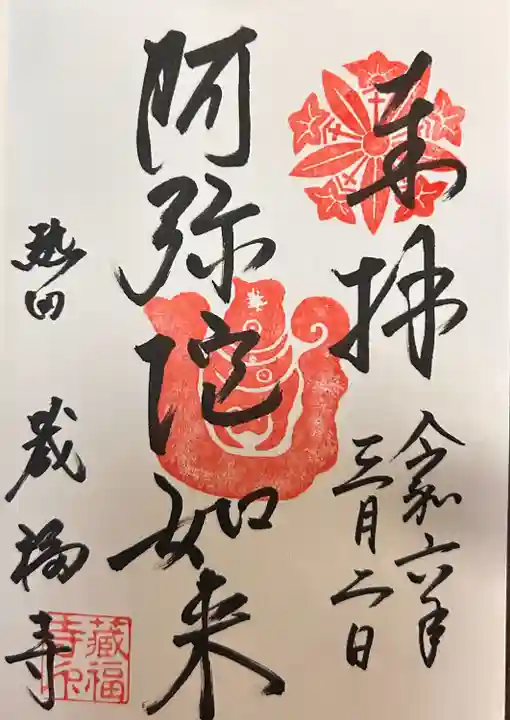 奉拝
令和六年
三月二日
阿弥陀如来
熱田
蔵福寺
藏福
寺印